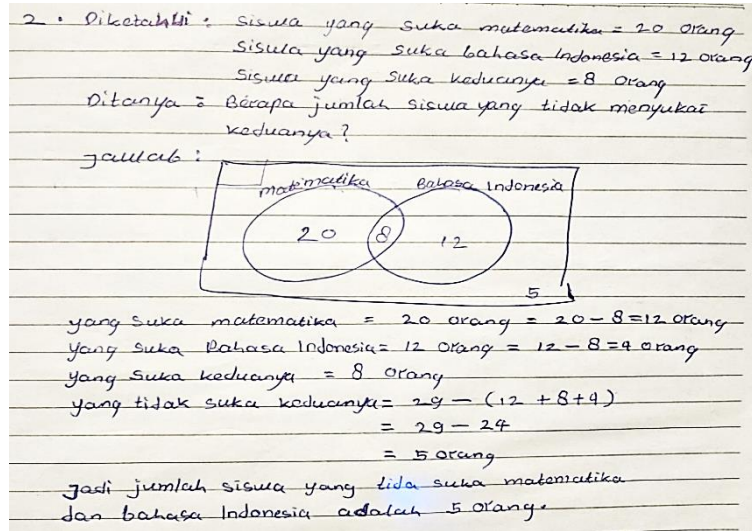 2. Diketahui : siswa yang suka matematika = 20 orang
siswa yang suka bahasa Indonesia = 12 orang
siswa yang suka keduanya = 8 orang
Ditanya = Berapa jumlah siswa yang tidak menyukai
keduanya?
Jawab :
matematika Bahasa Indonesia
20 8 12
5
yang suka matematika = 20 orang = 20 - 8 = 12 orang
yang suka Bahasa Indonesia = 12 orang = 12 - 8 = 4 orang
yang suka keduanya = 8 orang
yang tidak suka keduanya = 29 - (12 + 8 + 4)
= 29 - 24
= 5 orang
Jadi jumlah siswa yang tida suka matematika
dan bahasa Indonesia adalah 5 orang.